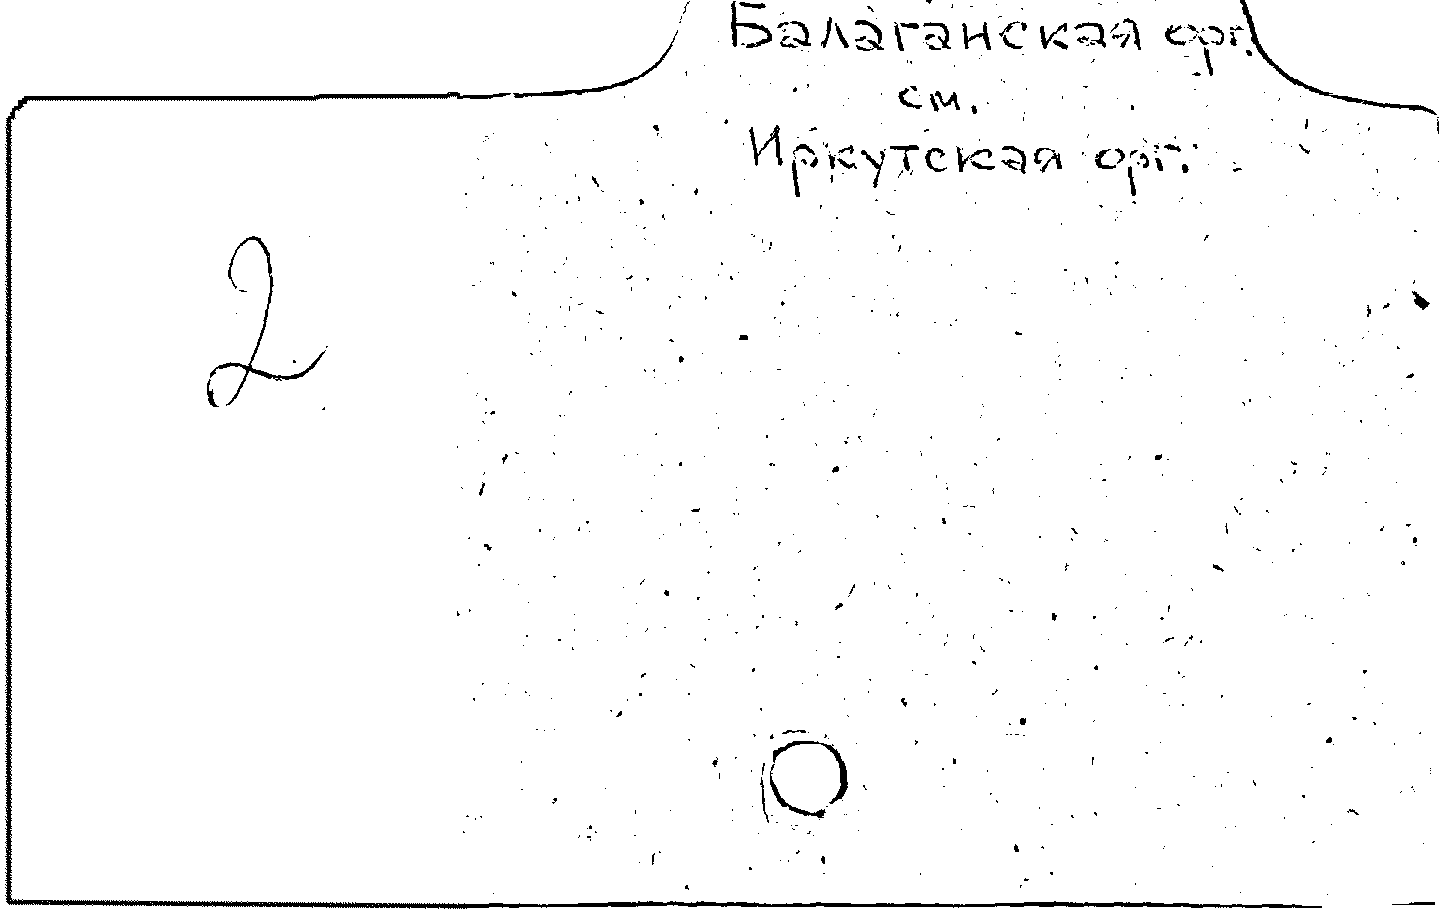 Балаганская орг.
см.
Иркутская орг.
2